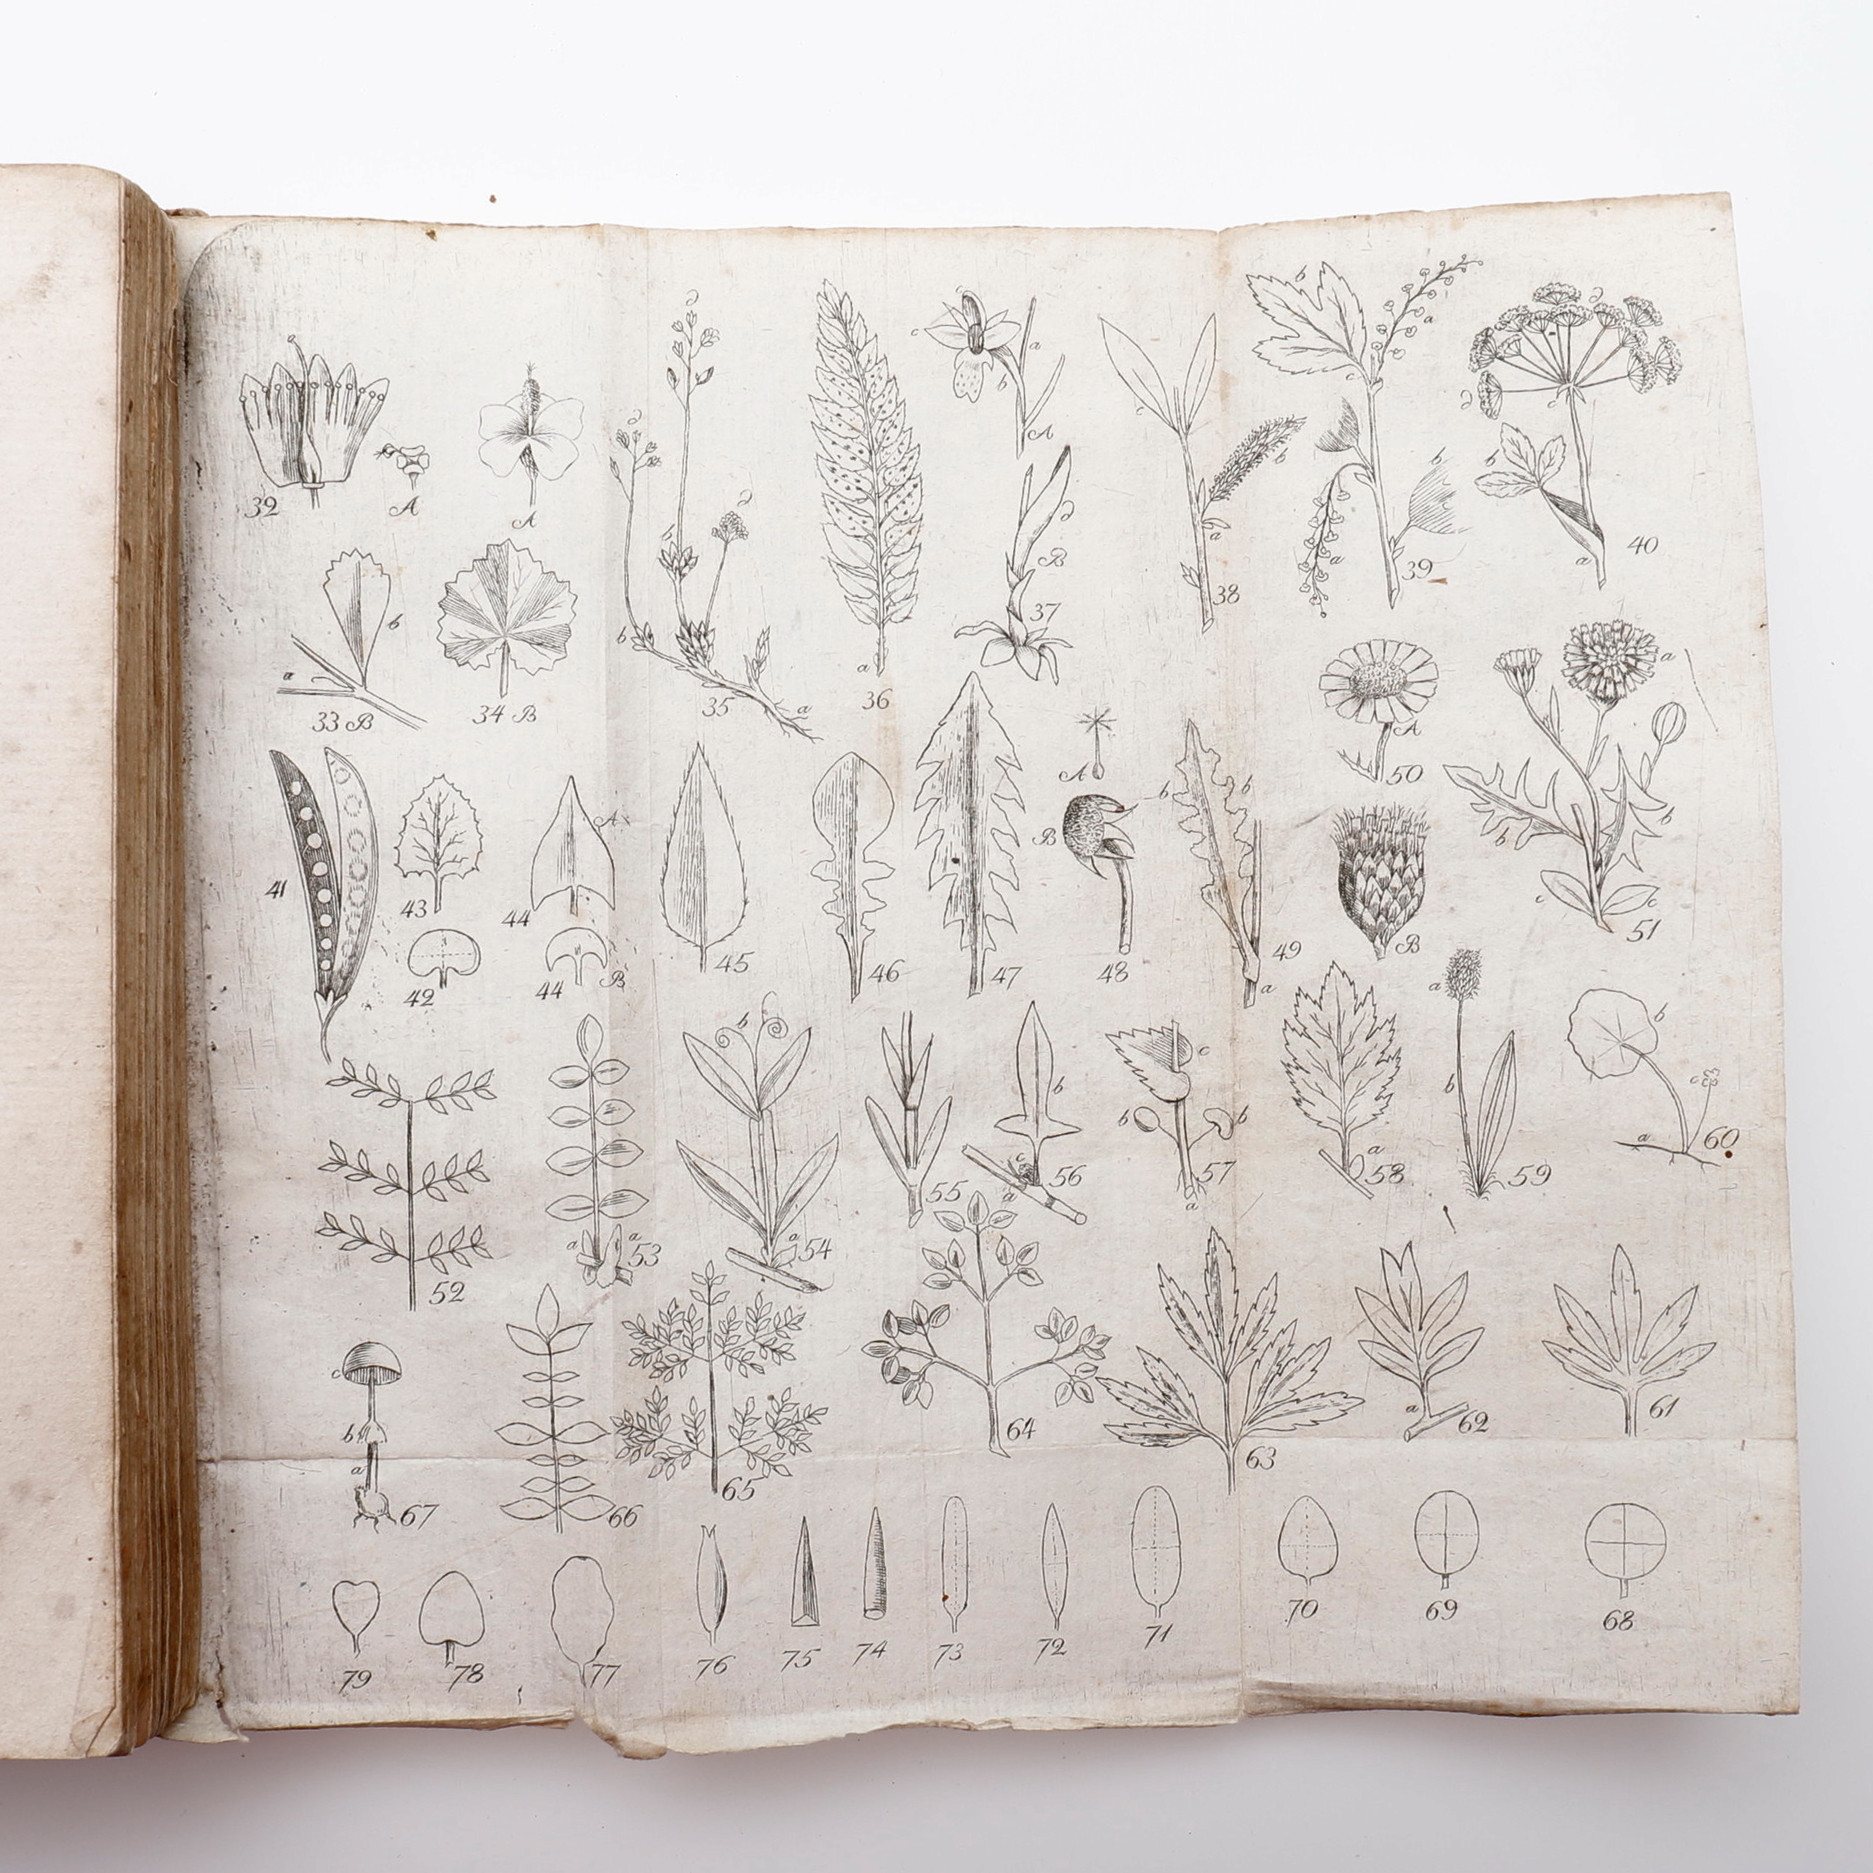 c b a
c a b b a c b
A A a
32 A A A 40
b B a 39 a
a b a 37 38
33 B 34 B 35 a 36 a
A A 50 b
41 43 44 A 45 46 47 B 48 b b 49 B c c 51
42 44 B a
b b c a b
b b b c
55 c 56 57 58 59 a 60
a a 53 a 54 a a
52
c
b 64 a 62 61
a 65 63
67 66
79 78 77 76 75 74 73 72 71 70 69 68